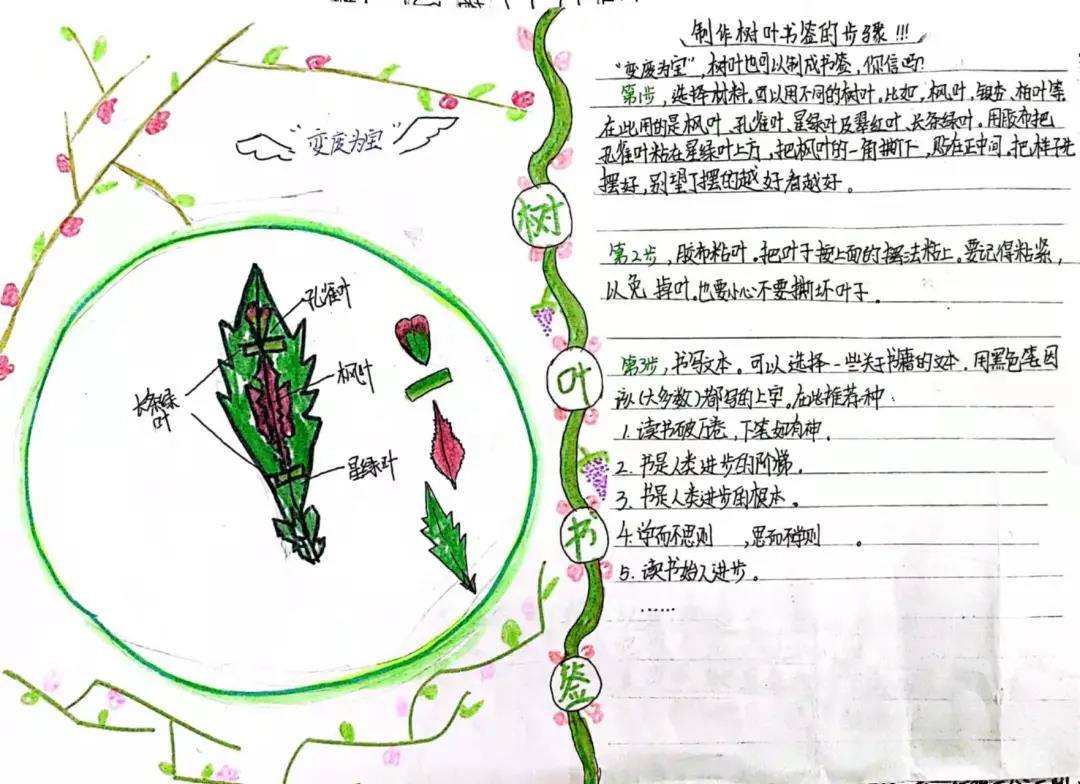 "变废为宝"
孔雀叶
枫叶
长条绿叶
星绿叶
树叶书签
制作树叶书签的步骤!!!
"变废为宝",树叶也可以制成书签,你信吗?
第1步,选择材料。可以用不同的树叶。比如,枫叶、银杏、柏叶等
在此用的是枫叶、孔雀叶、星绿叶及翠红叶、长条绿叶。用胶布把
孔雀叶粘在星绿叶上方,把枫叶的一角撕下,贴在正中间,把样子先
摆好,别望了摆的越好看越好。
第2步,胶布粘叶。把叶子按上面的摆法粘上。要记得粘紧,
以免掉叶。也要小心不要撕坏叶子。
第3步,书写文本。可以选择一些关于书籍的文本,用黑色笔因
该(大多数)都写的上字。在此推荐种:
1.读书破万卷,下笔如有神。
2.书是人类进步的阶梯。
3.书是人类进步的根本。
4.学而不思则 ,思而不学则 。
5.读书始入进步。
……